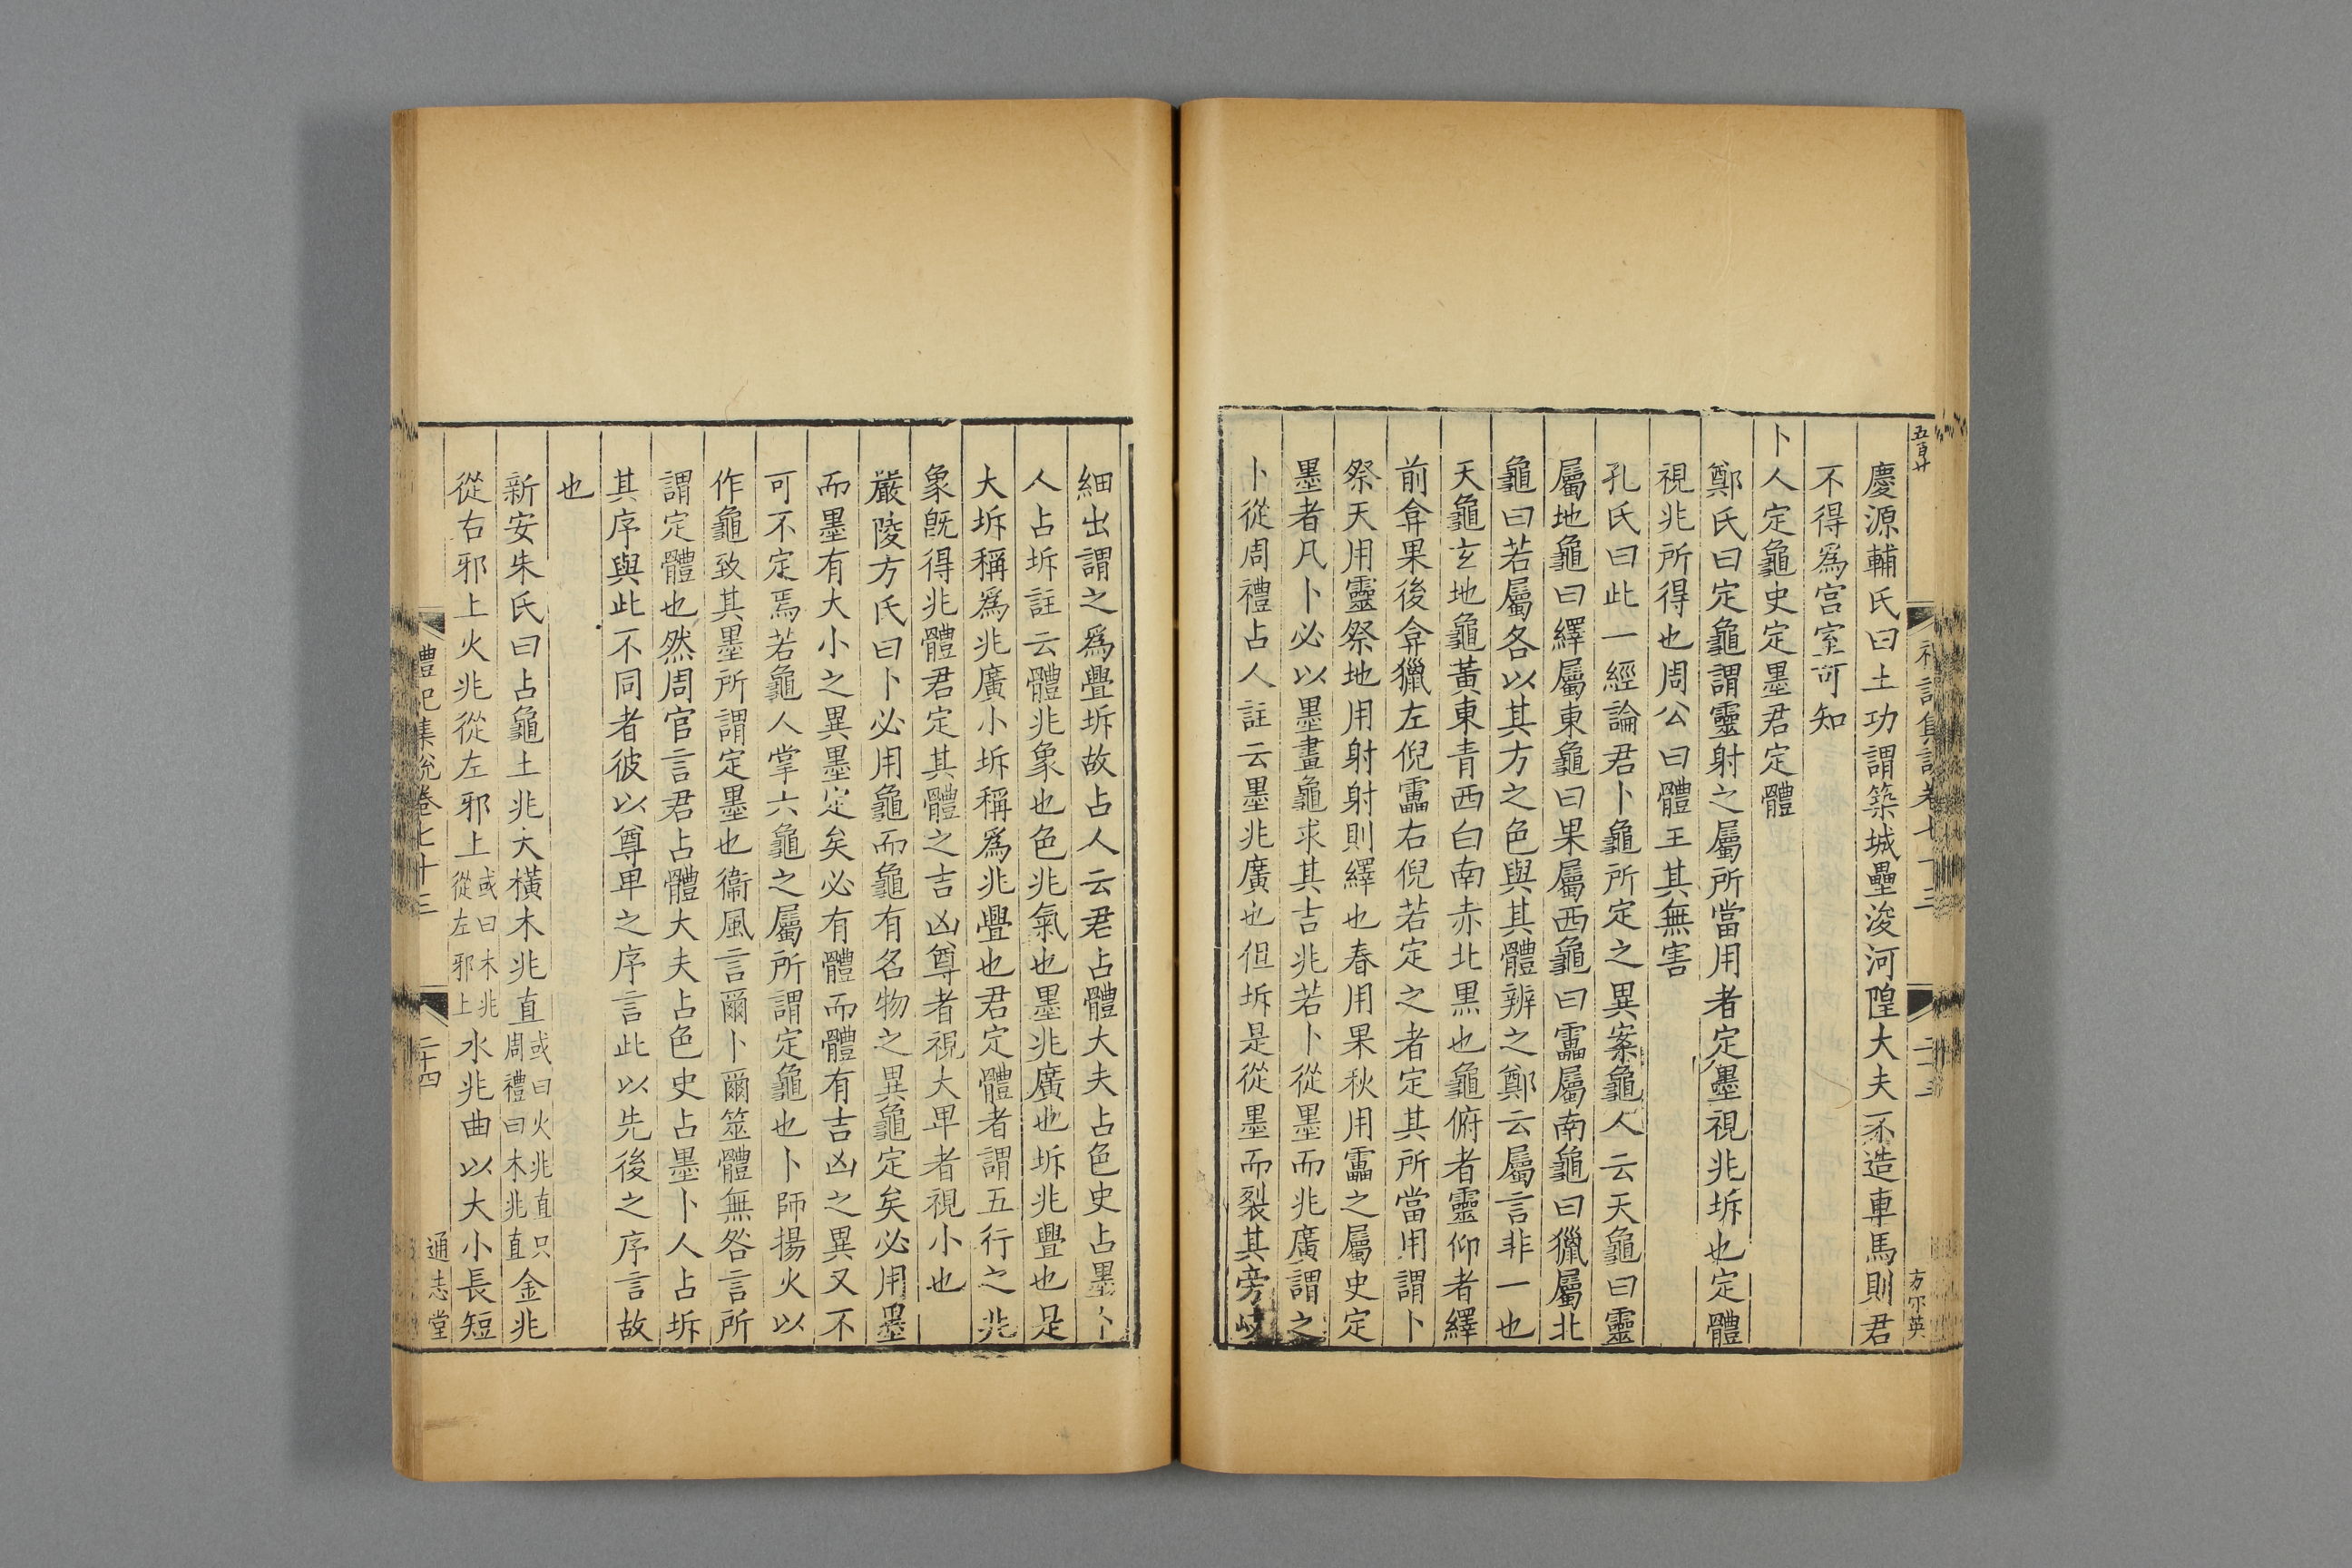 五百廿
慶源輔氏曰土功謂築城壘浚河隍大夫不造車馬則君
不得爲宫室可知
卜人定龜史定墨君定體
鄭氏曰定龜謂靈射之屬所當用者定墨視兆坼也定體
視兆所得也周公曰體王其無害
孔氏曰此一經論君卜龜所定之異案龜人云天龜曰靈
屬地龜曰繹屬東龜曰果屬西龜曰靁屬南龜曰獵屬北
龜曰若屬各以其方之色與其體辨之鄭云屬言非一也
天龜玄地龜黃東青西白南赤北黒也龜俯者靈仰者繹
前弇果後弇獵左倪靁右倪若定之者定其所當用謂卜
祭天用靈祭地用射射則繹也春用果秋用靁之屬史定
墨者凡卜必以墨畫龜求其吉兆若卜從墨而兆廣謂之
卜從周禮占人註云墨兆廣也但坼是從墨而裂其旁岐
細出謂之爲璺坼故占人云君占體大夫占色史占墨卜
人占坼註云體兆象也色兆氣也墨兆廣也坼兆璺也是
大坼稱爲兆廣小坼稱爲兆璺也君定體者謂五行之兆
象旣得兆體君定其體之吉凶尊者視大卑者視小也
嚴陵方氏曰卜必用龜而龜有名物之異龜定矣必用墨
而墨有大小之異墨定矣必有體而體有吉凶之異又不
可不定焉若龜人掌六龜之屬所謂定龜也卜師揚火以
作龜致其墨所謂定墨也衞風言爾卜爾筮體無咎言所
謂定體也然周官言君占體大夫占色史占墨卜人占坼
其序與此不同者彼以尊卑之序言此以先後之序言故
也
新安朱氏曰占龜土兆大横木兆直或曰火兆直只周禮曰木兆直金兆
從右邪上火兆從左邪上或曰木兆從左邪上水兆曲以大小長短
禮記集說卷七十三 二十四 通志堂